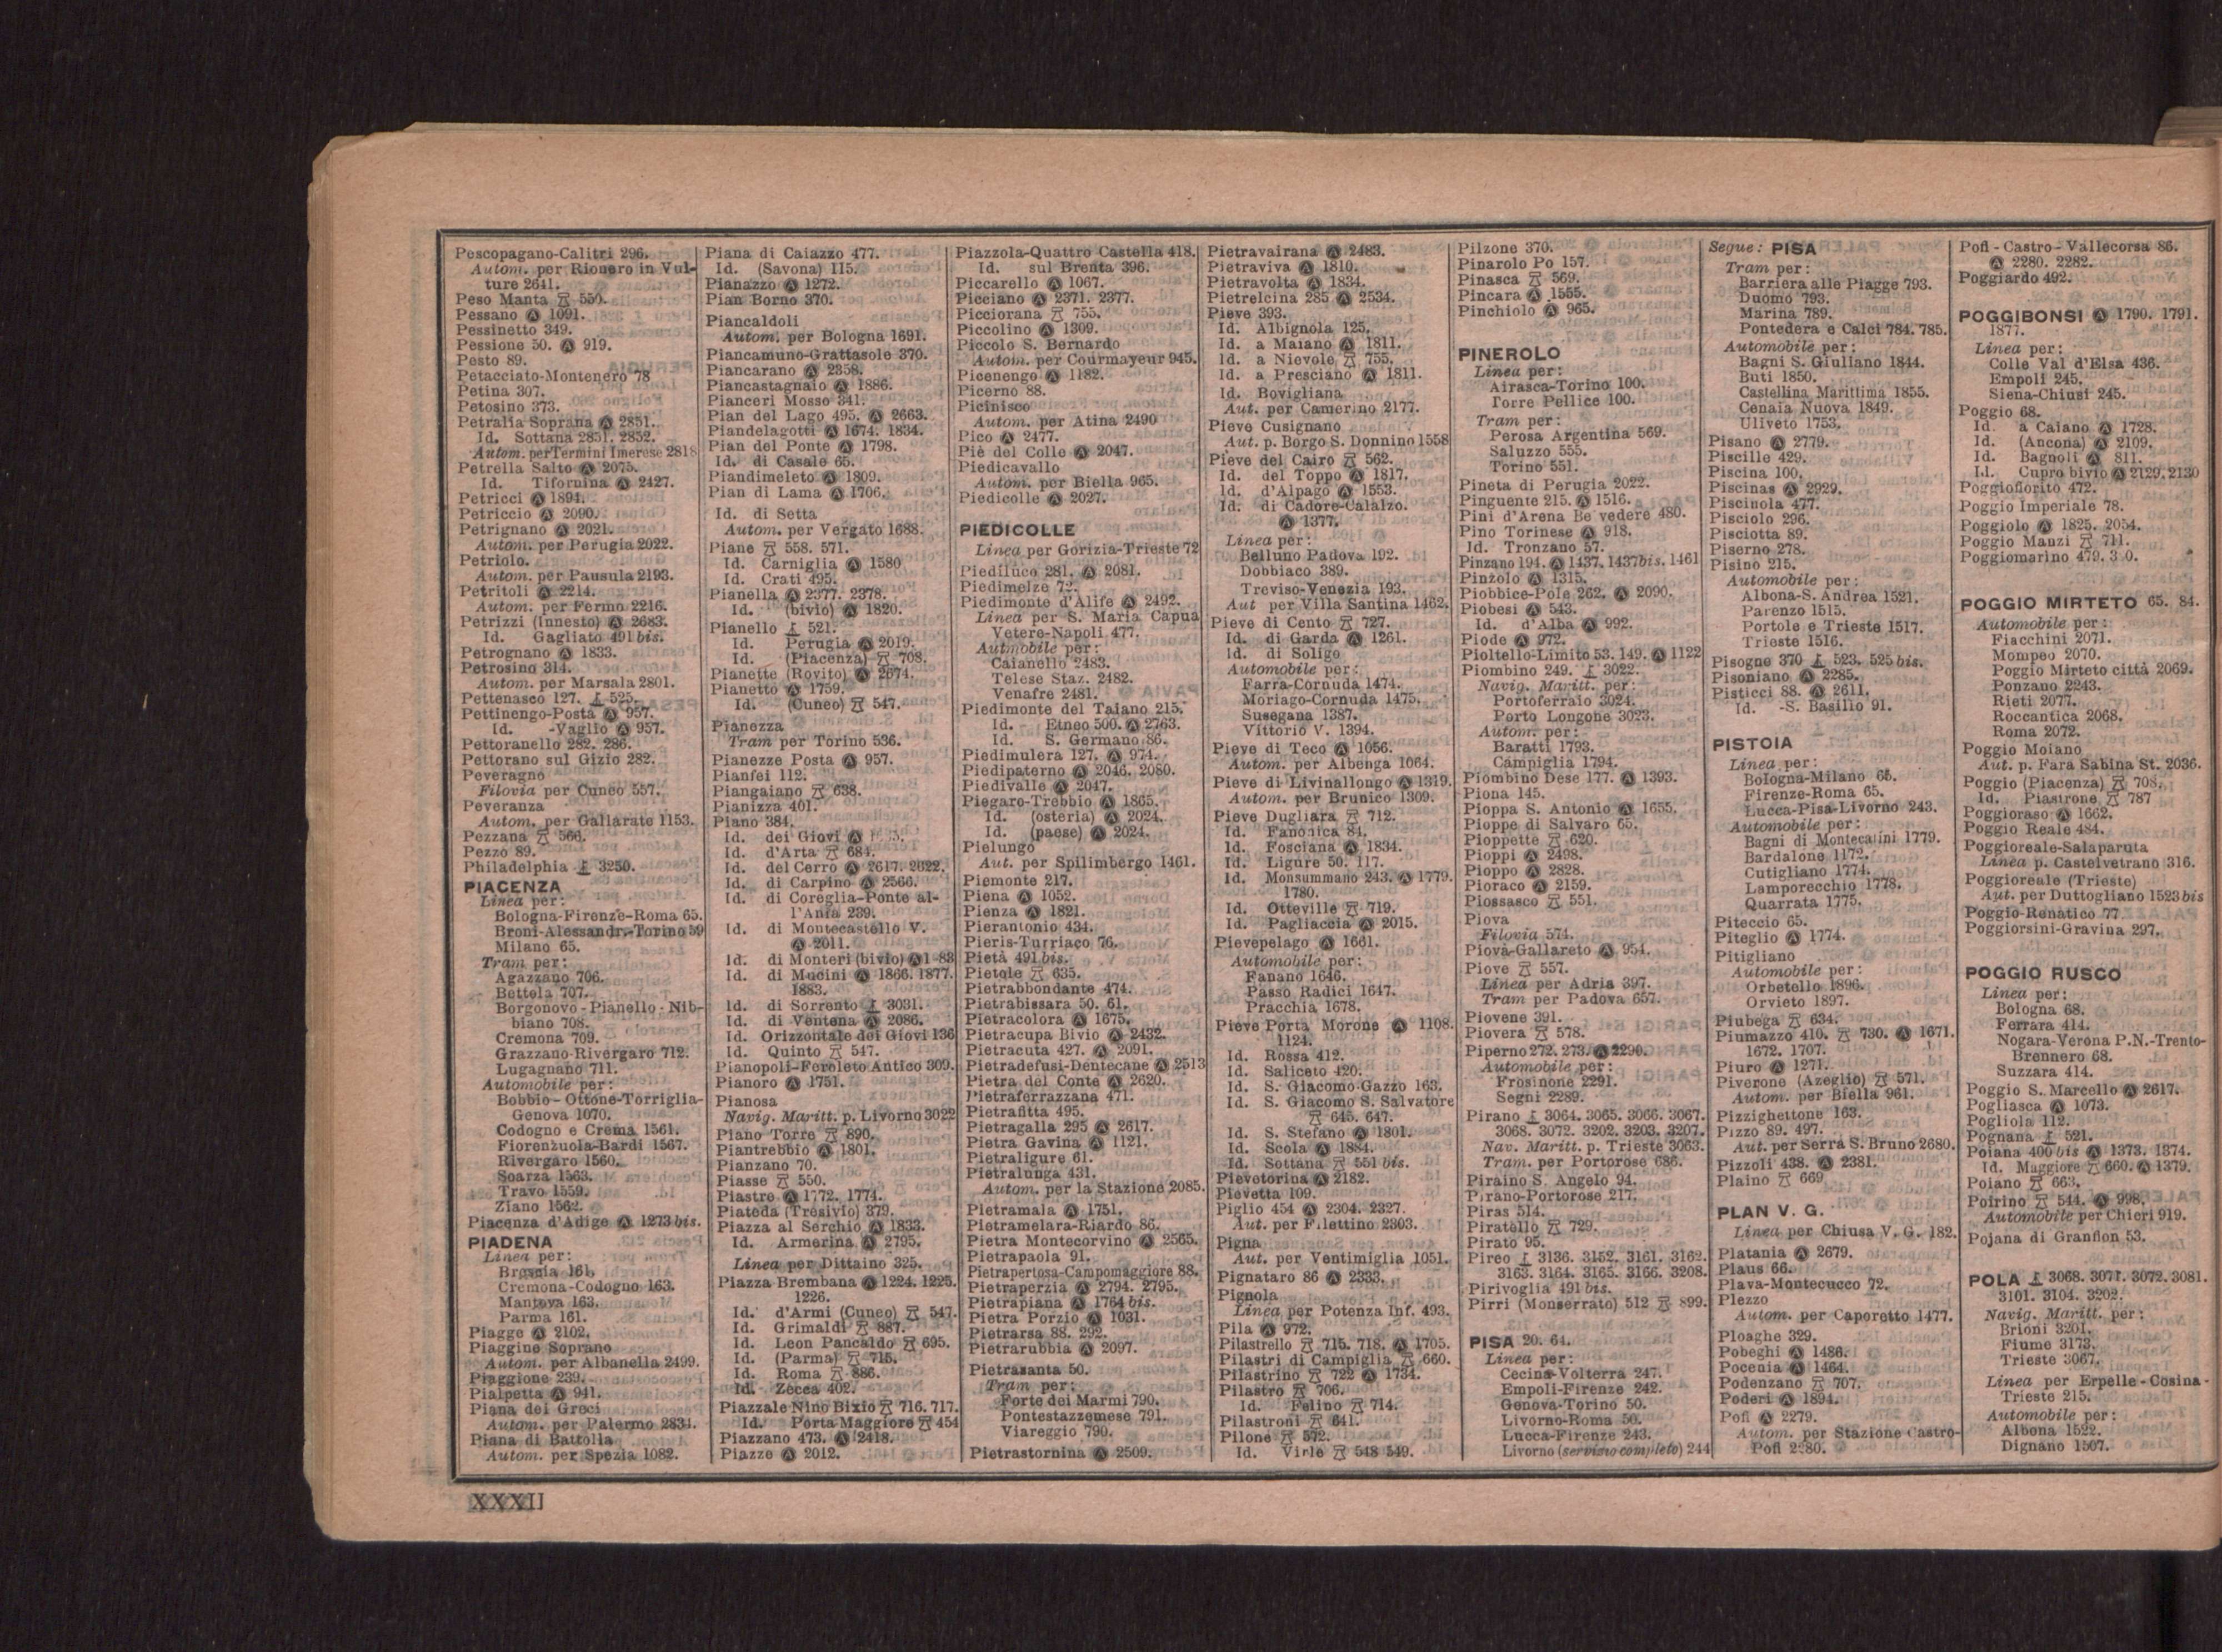 Pescopagano-Calitri 296.
Autom. per Rionero in Vul-
ture 2641.
Peso Manta 550.
Pessano Ⓐ 1091.
Pessinetto 349.
Pessione 50. Ⓐ 919.
Pesto 89.
Petacciato-Montenero 78
Petina 307.
Petosino 373.
Petralia Soprana Ⓐ 2851.
Id. Sottana 2851. 2852.
Autom. per Termini Imerese 2818
Petrella Salto Ⓐ 2075.
Id. Tifernina Ⓐ 2427.
Petricci Ⓐ 1894.
Petriccio Ⓐ 2090.
Petrignano Ⓐ 2021.
Autom. per Perugia 2022.
Petriolo.
Autom. per Pausula 2193.
Petritoli Ⓐ 2214.
Autom. per Fermo 2216.
Petrizzi (Innesto) Ⓐ 2683.
Id. Gagliato 491 bis.
Petrognano Ⓐ 1833.
Petrosino 314.
Autom. per Marsala 2801.
Pettenasco 127. 525.
Pettinengo-Posta Ⓐ 957.
Id. -Vaglio Ⓐ 957.
Pettoranello 282. 286.
Pettorano sul Gizio 282.
Peveragno
Filovia per Cuneo 557.
Peveranza
Autom. per Gallarate 1153.
Pezzana 566.
Pezzo 89.
Philadelphia 3250.
PIACENZA
Linea per:
Bologna-Firenze-Roma 65.
Broni-Alessandr.-Torino 59
Milano 65.
Tram per:
Agazzano 706.
Bettola 707.
Borgonovo - Pianello - Nib-
biano 708.
Cremona 709.
Grazzano-Rivergaro 712.
Lugagnano 711.
Automobile per:
Bobbio - Ottone-Torriglia-
Genova 1070.
Codogno e Crema 1561.
Fiorenzuola-Bardi 1567.
Rivergaro 1560.
Soarza 1563.
Travo 1559.
Ziano 1562.
Piacenza d'Adige Ⓐ 1273 bis.
PIADENA
Linea per:
Brescia 161.
Cremona-Codogno 163.
Mantova 163.
Parma 161.
Piagge Ⓐ 2102.
Piaggine Soprano
Autom. per Albanella 2499.
Piaggione 239.
Pialpetta Ⓐ 941.
Piana dei Greci
Autom. per Palermo 2834.
Piana di Battolla
Autom. per Spezia 1082.
Piana di Caiazzo 477.
Id. (Savona) 115.
Pianazzo Ⓐ 1272.
Pian Borno 370.
Piancaldoli
Autom. per Bologna 1691.
Piancamuno-Grattasole 370.
Piancarano Ⓐ 2358.
Piancastagnaio Ⓐ 1886.
Pianceri Mosso 341.
Pian del Lago 495. Ⓐ 2663.
Piandelagotti Ⓐ 1674. 1834.
Pian del Ponte Ⓐ 1798.
Id. di Casale 65.
Piandimeleto Ⓐ 1809.
Pian di Lama Ⓐ 1706.
Id. di Setta
Autom. per Vergato 1688.
Piane 558. 571.
Id. Carniglia Ⓐ 1580
Id. Crati 495.
Pianella Ⓐ 2377. 2378.
Id. (bivio) Ⓐ 1820.
Pianello 521.
Id. Perugia Ⓐ 2019.
Id. (Piacenza) 708.
Pianette (Rovito) Ⓐ 2674.
Pianetto Ⓐ 1759.
Id. (Cuneo) 547.
Pianezza
Tram per Torino 536.
Pianezze Posta Ⓐ 957.
Pianfei 112.
Piangaiano 638.
Pianizza 401.
Piano 384.
Id. dei Giovi Ⓐ
Id. d'Arta 684.
Id. del Cerro Ⓐ 2617. 2622.
Id. di Carpino Ⓐ 2566.
Id. di Coreglia-Ponte al-
l'Ania 239.
Id. di Montecastello V.
Ⓐ 2011.
Id. di Monteri (bivio) Ⓐ
Id. di Mucini Ⓐ 1866. 1877.
1883.
Id. di Sorrento 3031.
Id. di Ventena Ⓐ 2086.
Id. Orizzontale dei Giovi 136
Id. Quinto 547.
Pianopoli-Feroleto Antico 309.
Pianoro Ⓐ 1751.
Pianosa
Navig. Maritt. p. Livorno 3022
Piano Torre 890.
Piantrebbio Ⓐ 1801.
Pianzano 70.
Piasse 550.
Piastre Ⓐ 1772. 1774.
Piateda (Tresivio) 379.
Piazza al Serchio Ⓐ 1833.
Id. Armerina Ⓐ 2795.
Linea per Dittaino 325.
Piazza Brembana Ⓐ 1224. 1225.
1226.
Id. d'Armi (Cuneo) 547.
Id. Grimaldi 887.
Id. Leon Pancaldo 695.
Id. (Parma) 715.
Id. Roma 886.
Id. Zecca 402.
Piazzale Nino Bixio 716. 717.
Id. Porta Maggiore 454
Piazzano 473. Ⓐ 2418.
Piazze Ⓐ 2012.
Piazzola-Quattro Castella 418.
Id. sul Brenta 396.
Piccarello Ⓐ 1067.
Picciano Ⓐ 2371. 2377.
Picciorana 755.
Piccolino Ⓐ 1309.
Piccolo S. Bernardo
Autom. per Courmayeur 945.
Picenengo Ⓐ 1182.
Picerno 88.
Picinisco
Autom. per Atina 2490
Pico Ⓐ 2477.
Piè del Colle Ⓐ 2047.
Piedicavallo
Autom. per Biella 965.
Piedicolle Ⓐ 2027.
PIEDICOLLE
Linea per Gorizia-Trieste 72
Piediluco 281. Ⓐ 2081.
Piedimelze 72.
Piedimonte d'Alife Ⓐ 2492.
Linea per S. Maria Capua
Vetere-Napoli 477.
Automobile per:
Caianello 2483.
Telese Staz. 2482.
Venafre 2481.
Piedimonte del Taiano 215.
Id. Etneo 500. Ⓐ 2763.
Id. S. Germano 86.
Piedimulera 127. Ⓐ 974.
Piedipaterno Ⓐ 2046. 2080.
Piedivalle Ⓐ 2047.
Piegaro-Trebbio Ⓐ 1865.
Id. (osteria) Ⓐ 2024.
Id. (paese) Ⓐ 2024.
Pielungo
Aut. per Spilimbergo 1461.
Piemonte 217.
Piena Ⓐ 1052.
Pienza Ⓐ 1821.
Pierantonio 434.
Pieris-Turriaco 76.
Pietà 491 bis.
Pietole 635.
Pietrabbondante 474.
Pietrabissara 50. 61.
Pietracolora Ⓐ 1675.
Pietracupa Bivio Ⓐ 2432.
Pietracuta 427. Ⓐ 2091.
Pietradefusi-Dentecane Ⓐ 2513
Pietra del Conte Ⓐ 2620.
Pietraferrazzana 471.
Pietrafitta 495.
Pietragalla 295 Ⓐ 2617.
Pietra Gavina Ⓐ 1121.
Pietraligure 61.
Pietralunga 431.
Autom. per la Stazione 2085.
Pietramala Ⓐ 1751.
Pietramelara-Riardo 86.
Pietra Montecorvino Ⓐ 2565.
Pietrapaola 91.
Pietrapertosa-Campomaggiore 88.
Pietraperzia Ⓐ 2794. 2795.
Pietrapiana Ⓐ 1764 bis.
Pietra Porzio Ⓐ 1031.
Pietrarsa 88. 292.
Pietrarubbia Ⓐ 2097.
Pietrasanta 50.
Tram per:
Forte dei Marmi 790.
Pontestazzemese 791.
Viareggio 790.
Pietrastornina Ⓐ 2509.
Pietravairana Ⓐ 2483.
Pietraviva Ⓐ 1810.
Pietravolta Ⓐ 1834.
Pietrelcina 285 Ⓐ 2534.
Pieve 393.
Id. Albignola 125.
Id. a Maiano Ⓐ 1811.
Id. a Nievole 755.
Id. a Presciano Ⓐ 1811.
Id. Bovigliana
Aut. per Camerino 2177.
Pieve Cusignano
Aut. p. Borgo S. Donnino 1558
Pieve del Cairo 562.
Id. del Toppo Ⓐ 1817.
Id. d'Alpago Ⓐ 1553.
Id. di Cadore-Calalzo.
Ⓐ 1377.
Linea per:
Belluno Padova 192.
Dobbiaco 389.
Treviso-Venezia 193.
Aut per Villa Santina 1462.
Pieve di Cento 727.
Id. di Garda Ⓐ 1261.
Id. di Soligo
Automobile per:
Farra-Cornuda 1474.
Moriago-Cornuda 1475.
Susegana 1387.
Vittorio V. 1394.
Pieve di Teco Ⓐ 1056.
Autom. per Albenga 1064.
Pieve di Livinallongo Ⓐ 1319.
Autom. per Brunico 1309.
Pieve Dugliara 712.
Id. Fanonica 84.
Id. Fosciana Ⓐ 1834.
Id. Ligure 50. 117.
Id. Monsummano 243. Ⓐ 1779.
1780.
Id. Otteville 719.
Id. Pagliaccia Ⓐ 2015.
Pievepelago Ⓐ 1661.
Automobile per:
Fanano 1646.
Passo Radici 1647.
Pracchia 1678.
Pieve Porta Morone Ⓐ 1108.
1124.
Id. Rossa 412.
Id. Saliceto 420.
Id. S. Giacomo-Gazzo 163.
Id. S. Giacomo S. Salvatore
645. 647.
Id. S. Stefano Ⓐ 1801.
Id. Scola Ⓐ 1884.
Id. Sottana 551 bis.
Pievetorina Ⓐ 2182.
Pievetta 109.
Piglio 454 Ⓐ 2304. 2327.
Aut. per Filettino 2303.
Pigna
Aut. per Ventimiglia 1051.
Pignataro 86 Ⓐ 2333.
Pignola
Linea per Potenza Inf. 493.
Pila Ⓐ 972.
Pilastrello 715. 718. Ⓐ 1705.
Pilastri di Campiglia 660.
Pilastrino 722 Ⓐ 1734.
Pilastro 706.
Id. Felino 714.
Pilastroni 641.
Pilone 572.
Id. Virle 548 549.
Pilzone 370.
Pinarolo Po 157.
Pinasca 569.
Pincara Ⓐ 1555.
Pinchiolo Ⓐ 965.
PINEROLO
Linea per:
Airasca-Torino 100.
Torre Pellice 100.
Tram per:
Perosa Argentina 569.
Saluzzo 555.
Torino 551.
Pineta di Perugia 2022.
Pinguente 215. Ⓐ 1516.
Pini d'Arena Be vedere 480.
Pino Torinese Ⓐ 918.
Id. Tronzano 57.
Pinzano 194. Ⓐ 1437. 1437 bis. 1461
Pinzolo Ⓐ 1315.
Piobbice-Pole 262. Ⓐ 2090.
Piobesi Ⓐ 543.
Id. d'Alba Ⓐ 992.
Piode Ⓐ 972.
Pioltello-Limito 53. 149. Ⓐ 1122
Piombino 249. 3022.
Navig. Maritt. per:
Portoferraio 3024.
Porto Longone 3023.
Autom. per:
Baratti 1793.
Campiglia 1794.
Piombino Dese 177. Ⓐ 1393.
Piona 145.
Pioppa S. Antonio Ⓐ 1655.
Pioppe di Salvaro 65.
Pioppette 620.
Pioppi Ⓐ 2498.
Pioppo Ⓐ 2828.
Pioraco Ⓐ 2159.
Piossasco 551.
Piova
Filovia 574.
Piovà-Gallareto Ⓐ 954.
Piove 557.
Linea per Adria 397.
Tram per Padova 657.
Piovene 391.
Piovera 578.
Piperno 272. 273. Ⓐ 2290.
Automobile per:
Frosinone 2291.
Segni 2289.
Pirano 3064. 3065. 3066. 3067.
3068. 3072. 3202. 3203. 3207.
Nav. Maritt. p. Trieste 3063.
Tram. per Portorose 686.
Piraino S. Angelo 94.
Pirano-Portorose 217.
Piras 514.
Piratello 729.
Pirato 95.
Pireo 3136. 3152. 3161. 3162.
3163. 3164. 3165. 3166. 3208.
Pirivoglia 491 bis.
Pirri (Monserrato) 512 899.
PISA 20. 64.
Linea per:
Cecina-Volterra 247.
Empoli-Firenze 242.
Genova-Torino 50.
Livorno-Roma 50.
Lucca-Firenze 243.
Livorno (servizio completo) 244
Segue: PISA
Tram per:
Barriera alle Piagge 793.
Duomo 793.
Marina 789.
Pontedera e Calci 784. 785.
Automobile per:
Bagni S. Giuliano 1844.
Buti 1850.
Castellina Marittima 1855.
Cenaia Nuova 1849.
Uliveto 1753.
Pisano Ⓐ 2779.
Piscille 429.
Piscina 100.
Piscinas Ⓐ 2929.
Piscinola 477.
Pisciolo 296.
Pisciotta 89.
Piserno 278.
Pisino 215.
Automobile per:
Albona-S. Andrea 1521.
Parenzo 1515.
Portole e Trieste 1517.
Trieste 1516.
Pisogne 370 523. 525 bis.
Pisoniano Ⓐ 2285.
Pisticci 88. Ⓐ 2611.
Id. -S. Basilio 91.
PISTOIA
Linea per:
Bologna-Milano 65.
Firenze-Roma 65.
Lucca-Pisa-Livorno 243.
Automobile per:
Bagni di Montecatini 1779.
Bardalone 1172.
Cutigliano 1774.
Lamporecchio 1778.
Quarrata 1775.
Piteccio 65.
Piteglio Ⓐ 1774.
Pitigliano
Automobile per:
Orbetello 1896.
Orvieto 1897.
Piubega 634.
Piumazzo 410. 730. Ⓐ 1671.
1672. 1707.
Piuro Ⓐ 1271.
Piverone (Azeglio) 571.
Autom. per Biella 961.
Pizzighettone 163.
Pizzo 89. 497.
Aut. per Serra S. Bruno 2680.
Pizzoli 438. Ⓐ 2381.
Plaino 669
PLAN V. G.
Linea per Chiusa V. G. 182.
Platania Ⓐ 2679.
Plaus 66.
Plava-Montecucco 72.
Plezzo
Autom. per Caporetto 1477.
Ploaghe 329.
Pobeghi Ⓐ 1486.
Pocenia Ⓐ 1464.
Podenzano 707.
Poderi Ⓐ 1894.
Pofi Ⓐ 2279.
Autom. per Stazione Castro-
Pofi 2280.
Pofi - Castro - Vallecorsa 86.
Ⓐ 2280. 2282.
Poggiardo 492.
POGGIBONSI Ⓐ 1790. 1791.
1877.
Linea per:
Colle Val d'Elsa 436.
Empoli 245.
Siena-Chiusi 245.
Poggio 68.
Id. a Caiano Ⓐ 1728.
Id. (Ancona) Ⓐ 2109.
Id. Bagnoli Ⓐ 811.
Id. Cupro bivio Ⓐ 2129. 2130
Poggiofiorito 472.
Poggio Imperiale 78.
Poggiolo Ⓐ 1825. 2054.
Poggio Manzi 711.
Poggiomarino 479.
POGGIO MIRTETO 65. 84.
Automobile per:
Fiacchini 2071.
Mompeo 2070.
Poggio Mirteto città 2069.
Ponzano 2243.
Rieti 2077.
Roccantica 2068.
Roma 2072.
Poggio Moiano
Aut. p. Fara Sabina St. 2036.
Poggio (Piacenza) 708.
Id. Piastrone 787
Poggioraso Ⓐ 1662.
Poggio Reale 484.
Poggioreale-Salaparuta
Linea p. Castelvetrano 316.
Poggioreale (Trieste)
Aut. per Duttogliano 1523 bis
Poggio-Renatico 77
Poggiorsini-Gravina 297.
POGGIO RUSCO
Linea per:
Bologna 68.
Ferrara 414.
Nogara-Verona P.N.-Trento-
Brennero 68.
Suzzara 414.
Poggio S. Marcello Ⓐ 2617.
Pogliasca Ⓐ 1073.
Pogliola 112.
Pognana 521.
Poiana 400 bis Ⓐ 1373. 1374.
Id. Maggiore 660. Ⓐ 1379.
Poiano 663.
Poirino 544. Ⓐ 998.
Automobile per Chieri 919.
Pojana di Granfion 53.
POLA 3068. 3071. 3072. 3081.
3101. 3104. 3202.
Navig. Maritt. per:
Brioni 3201.
Fiume 3173.
Trieste 3067.
Linea per Erpelle - Cosina -
Trieste 215.
Automobile per:
Albona 1522.
Dignano 1507.
XXXII